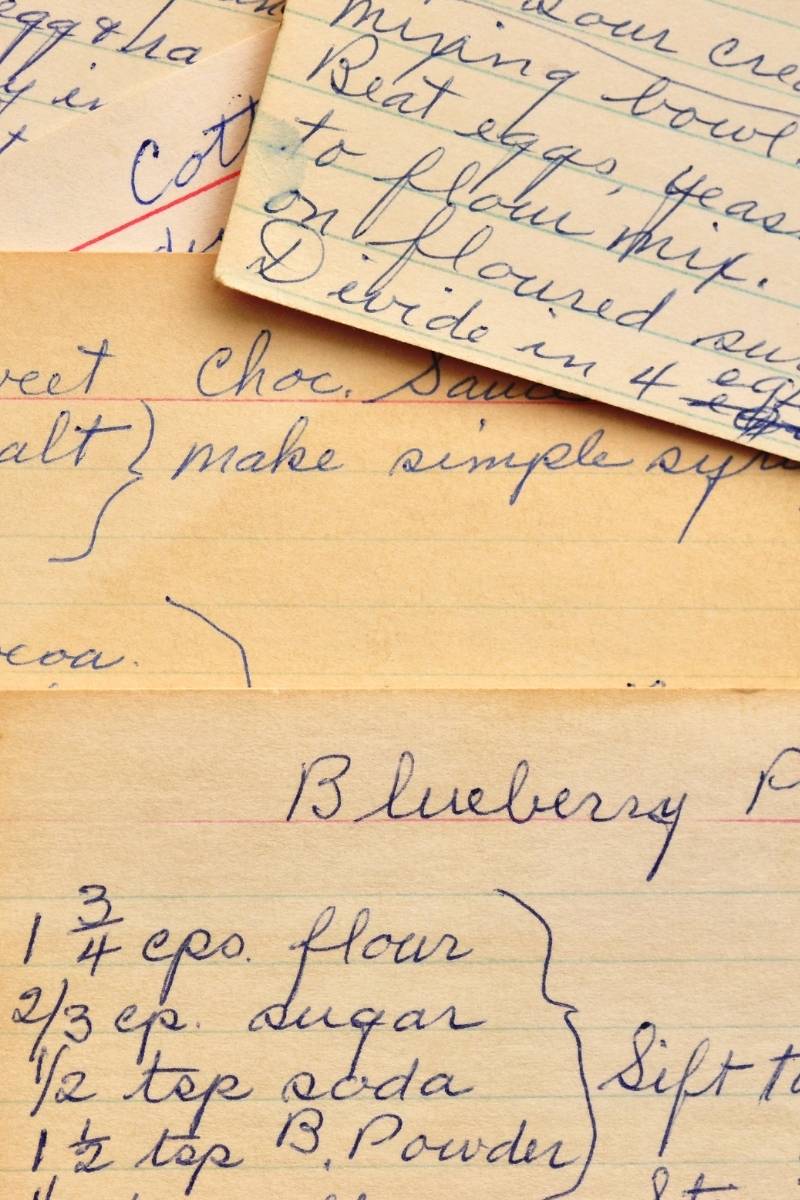 egg & ha
y in
Cott
Sour crea
mixing bowl.
Beat eggs, yeas
to flour mix.
on floured sur
Divide in 4 eq
weet Choc. Sauce
alt } make simple syru
ocoa.
Blueberry P
1 3/4 cps. flour
2/3 cp. sugar
1/2 tsp soda
1 1/2 tsp B. Powder
Sift to